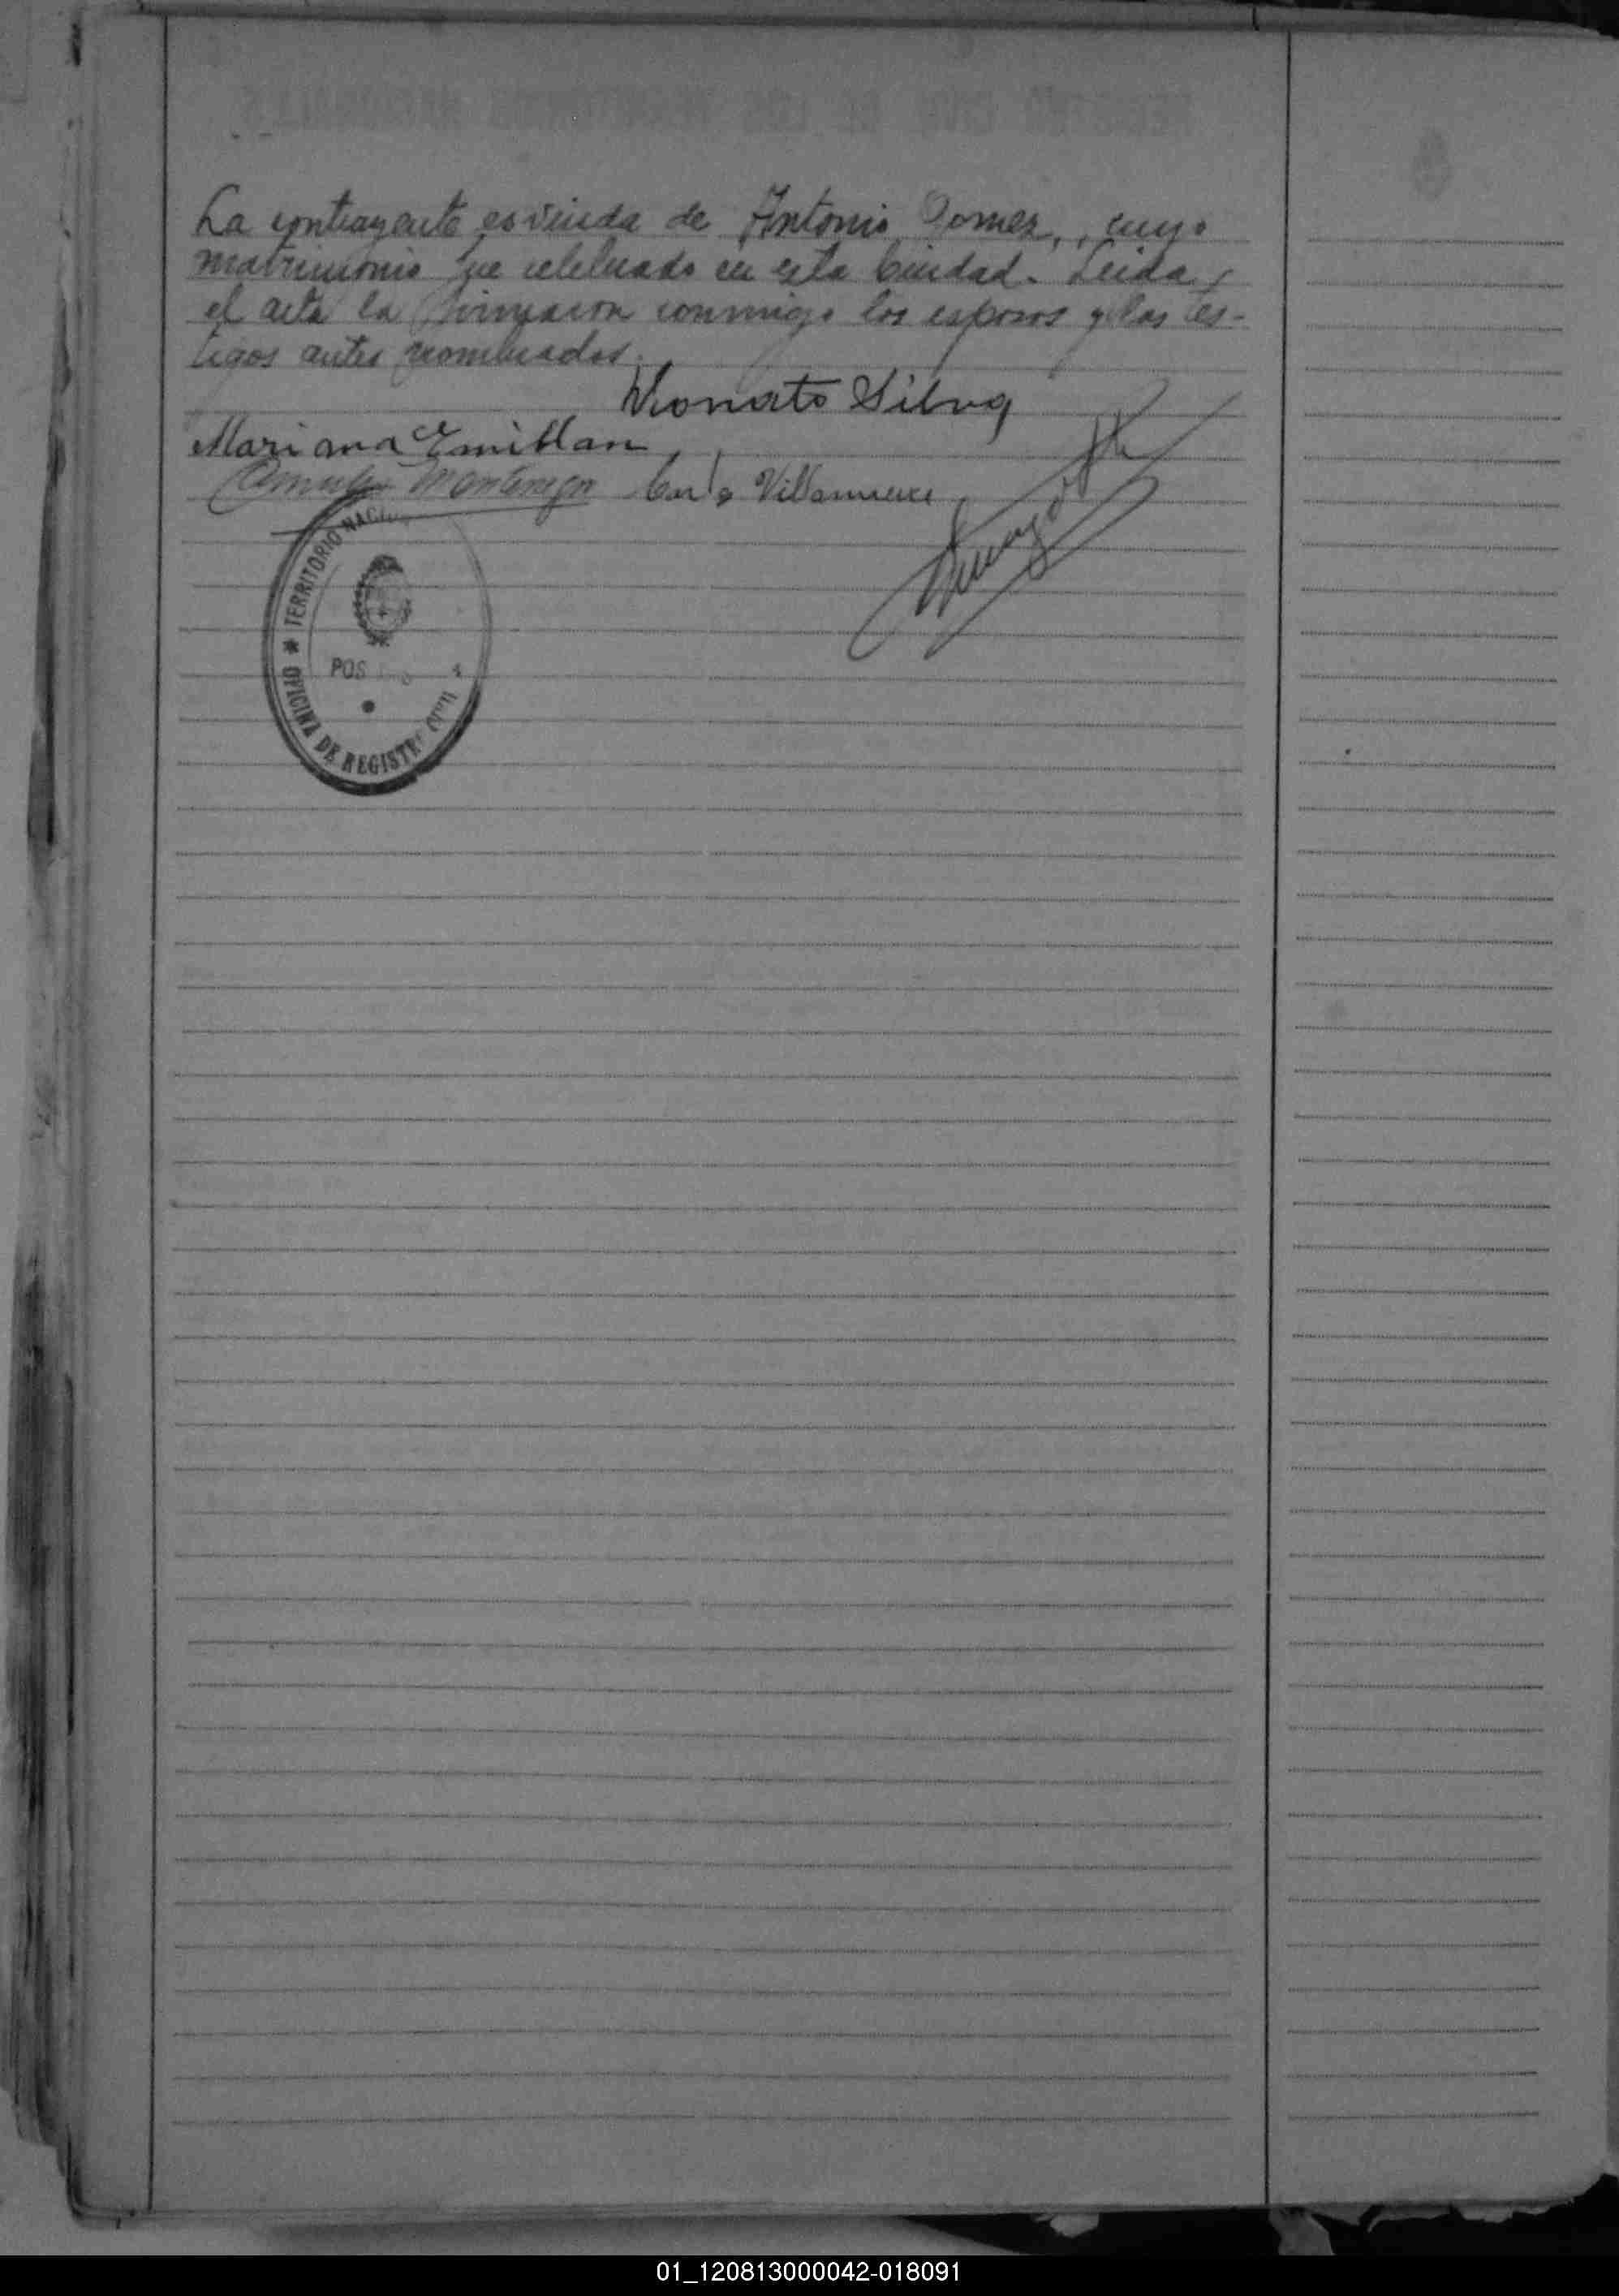 La contrayente es viuda de Antonio Gomez, cuyo
matrimonio fue celebrado en esta Ciudad. Leida
el acta la firmaron conmigo los esposos y los tes-
tigos antes nombrados.
Silva
Mariana Emillan
Montenegro Carlo Villanueva
TERRITORIO NACIO
POS
OFICINA DE REGISTRO CIVIL
01_120813000042-018091